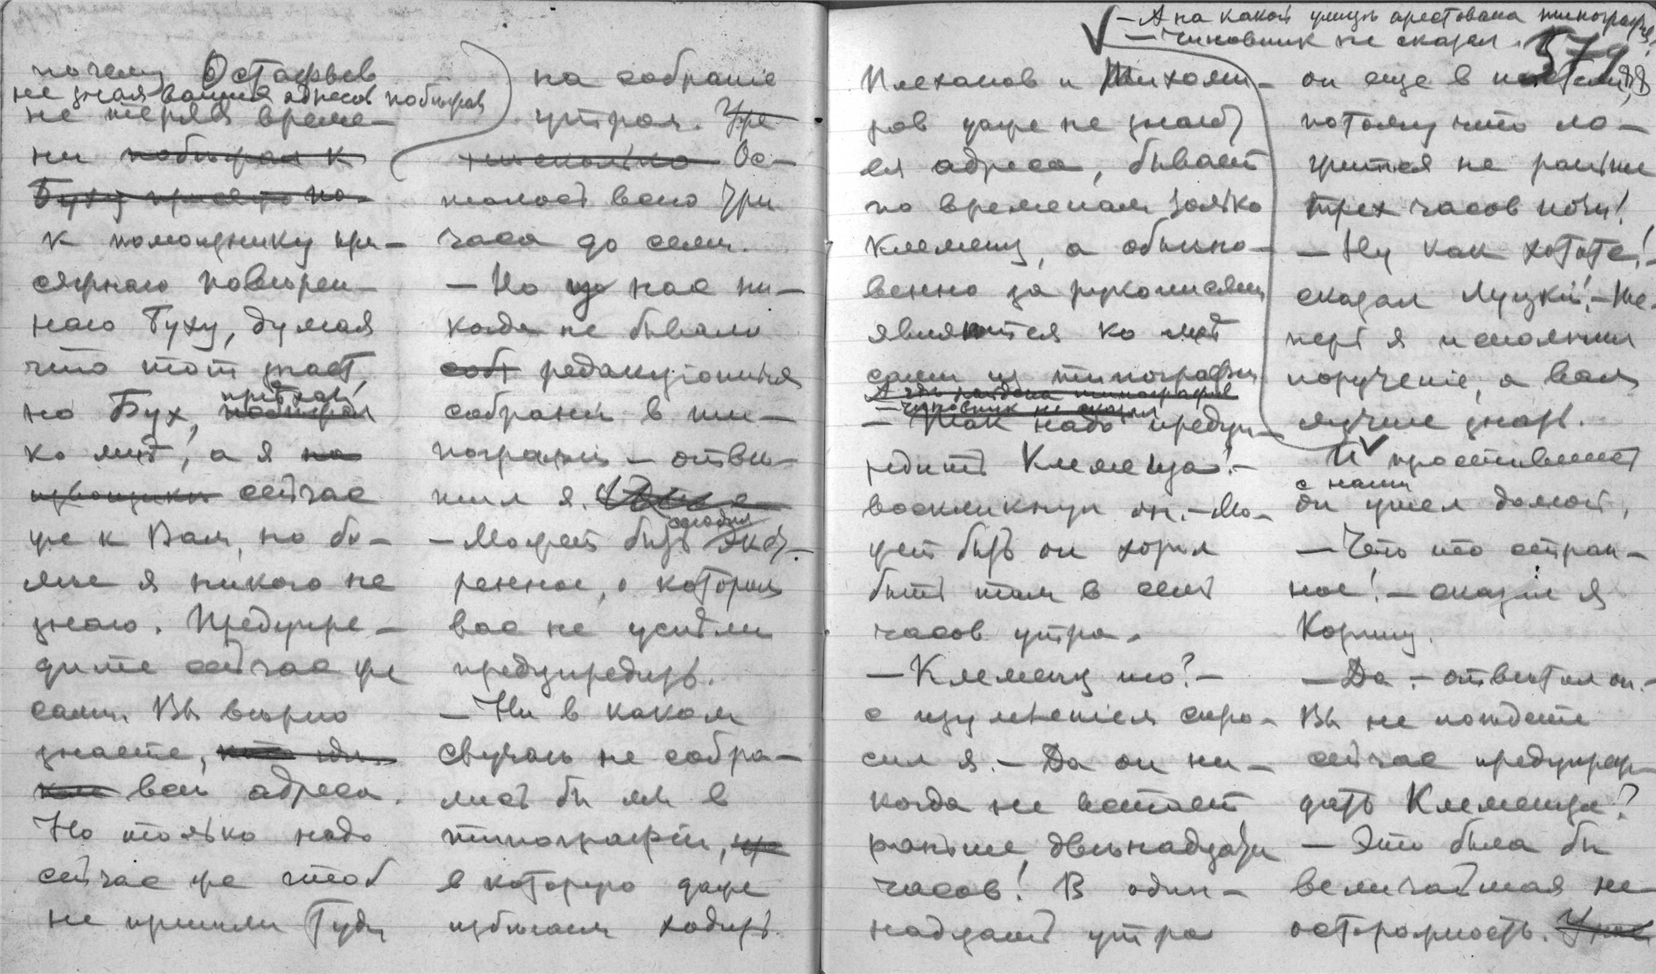 почему Остафьев
не зная ваших адресов побежал
не теряя време-
ни побежал к
Буху
к помощнику при-
сяжнаго поверен-
наго Буху, думая
что тот знает
но Бух, прибежал
ко мне, а я на
извощике сейчас
же к Вам, но бо-
лее я никого не
знаю. Предупре-
дите сейчас же
сами. Вы верно
знаете,
все адреса.
Но только надо
сейчас же чтоб
не пришли туда
на собрание
утром. Уже
несколько Ос-
талось всего три
часа до семи.
— Но у нас ни-
когда не бывало
редакционных
собраний в ти-
пографии — отве-
тил я.
— Может быть сегодня экст-
ренное, о котором
вас не успели
предупредить.
— Ни в каком
случае не собра-
лись бы мы в
типографии,
в которую даже
избегаем ходить.
— А на какой улице арестована типография?
— Чиновник не сказал.
579
Плеханов и Тихоми-
ров даже не знают
ея адреса, бывает
по временам только
Клеменц, а обыкно-
венно за рукописями
являются ко мне
сами из типографии
А где найдена типография
— Чиновник не сказал
— Так надо предуп-
редить Клеменца! —
воскликнул он. — Мо-
жет быть он хотел
быть там в семь
часов утра.
— Клеменц то? —
с изумлением спро-
сил я. — Да он ни-
когда не встает
раньше двенадцати
часов! В один-
надцать утра
он еще в постели,
потому что ло-
жится не раньше
трех часов ночи!
— Ну как хотите! —
сказал Луцкий. — Те-
перь я исполнил
поручение, а вам
лучше знать.
И простившись
с нами
он ушел домой.
— Что то стран-
ное! — сказал я
Коршу.
— Да — ответил он. —
Вы не пойдете
сейчас предупреж-
дать Клеменца?
— Это была бы
величайшая не
осторожность.